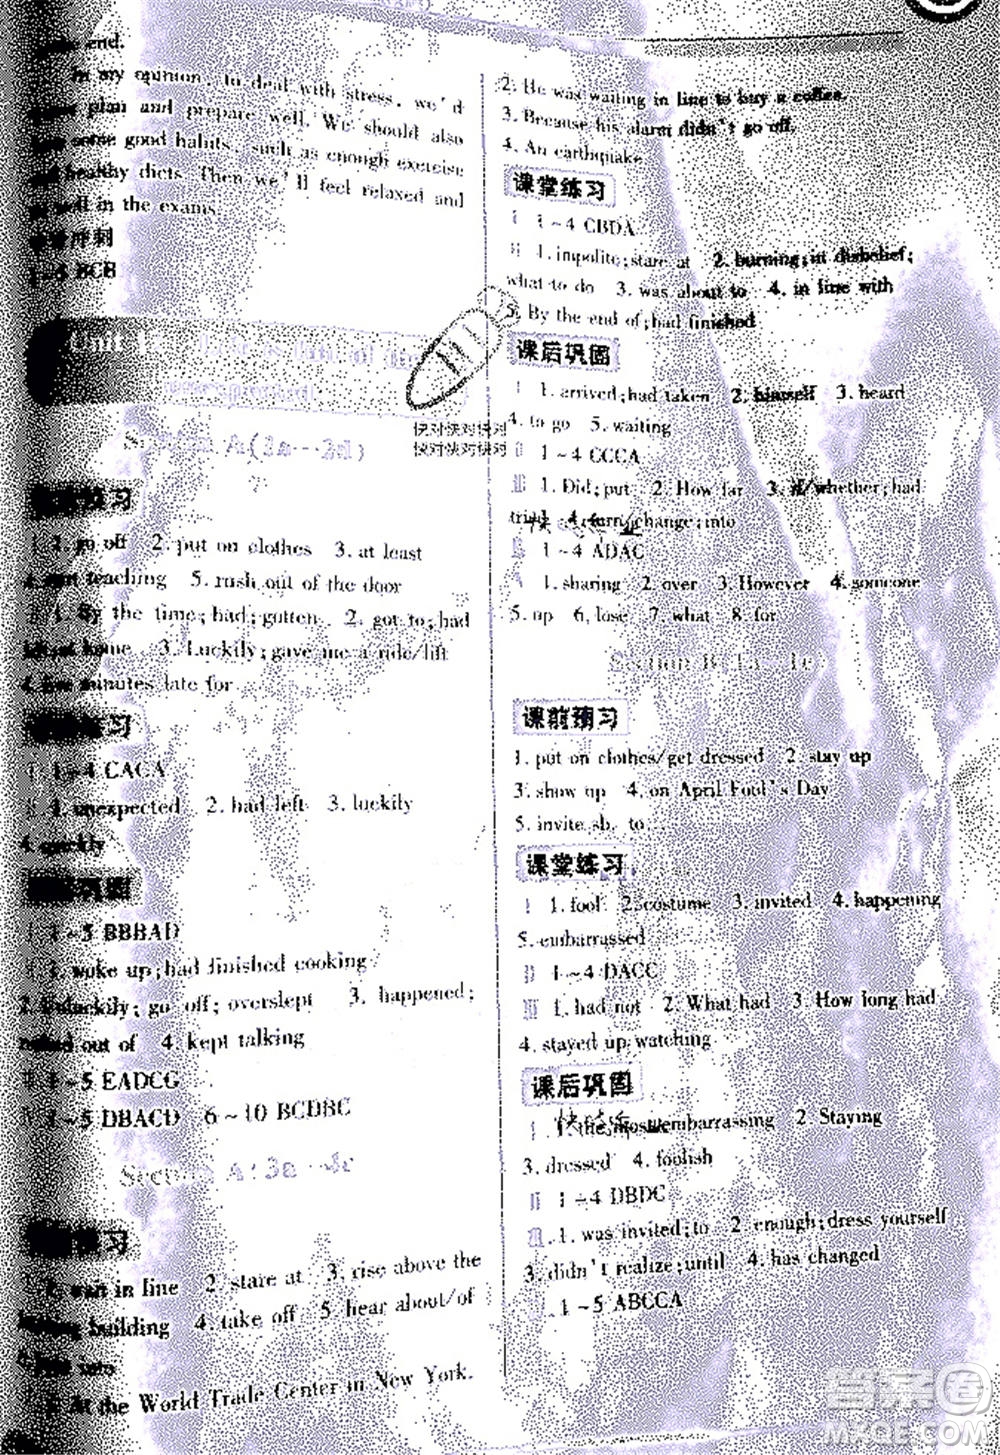 end.
In my opinion, to deal with stress, we'd
plan and prepare well. We should also
some good habits, such as enough exercise
healthy diets. Then we'll feel relaxed and
well in the exams.
冲刺
1~4 BCB
Unit
Section A(2a—2d)
习
1. go off 2. put on clothes 3. at least
teaching 5. rush out of the door
1. By the time; had; gotten 2. got to; had
home 3. Luckily; gave me a ride/lift
4. few minutes late for
练习
1~4 CACA
1. unexpected 2. had left 3. luckily
4. quickly
巩固
1~5 BBBAD
1. woke up; had finished cooking
2. Unluckily; go off; overslept 3. happened;
out of 4. kept talking
1~5 EADCG
1~5 DBACD 6~10 BCDBC
Section A(3a—
习
1. wait in line 2. stare at 3. rise above the
building 4. take off 5. hear about/of
1. At the World Trade Center in New York.
2. He was waiting in line to buy a coffee.
3. Because his alarm didn't go off.
4. An earthquake.
课堂练习
Ⅰ 1~4 CBDA
Ⅱ 1. impolite; stare at 2. burning; in disbelief;
what to do 3. was about to 4. in line with
5. By the end of; had finished
课后巩固
Ⅰ 1. arrived; had taken 2. himself 3. heard
4. to go 5. waiting
Ⅱ 1~4 CCCA
Ⅲ 1. Did; put 2. How far 3. if/whether; had
tried 4. turn/change; into
1~4 ADAC
1. sharing 2. over 3. However 4. someone
5. up 6. lose 7. what 8. for
Section B(1a—1e)
课前预习
1. put on clothes/get dressed 2. stay up
3. show up 4. on April Fool's Day
5. invite sb. to...
课堂练习
Ⅰ 1. fool 2. costume 3. invited 4. happening
5. embarrassed
Ⅱ 1~4 DACC
Ⅲ 1. had not 2. What had 3. How long had
4. stayed up watching
课后巩固
Ⅰ 1. the most embarrassing 2. Staying
3. dressed 4. foolish
Ⅱ 1~4 DBDC
Ⅲ 1. was invited; to 2. enough; dress yourself
3. didn't realize; until 4. has changed
1~5 ABCCA
快对快对快对
快对快对快对
答案圈
MXQE.COM